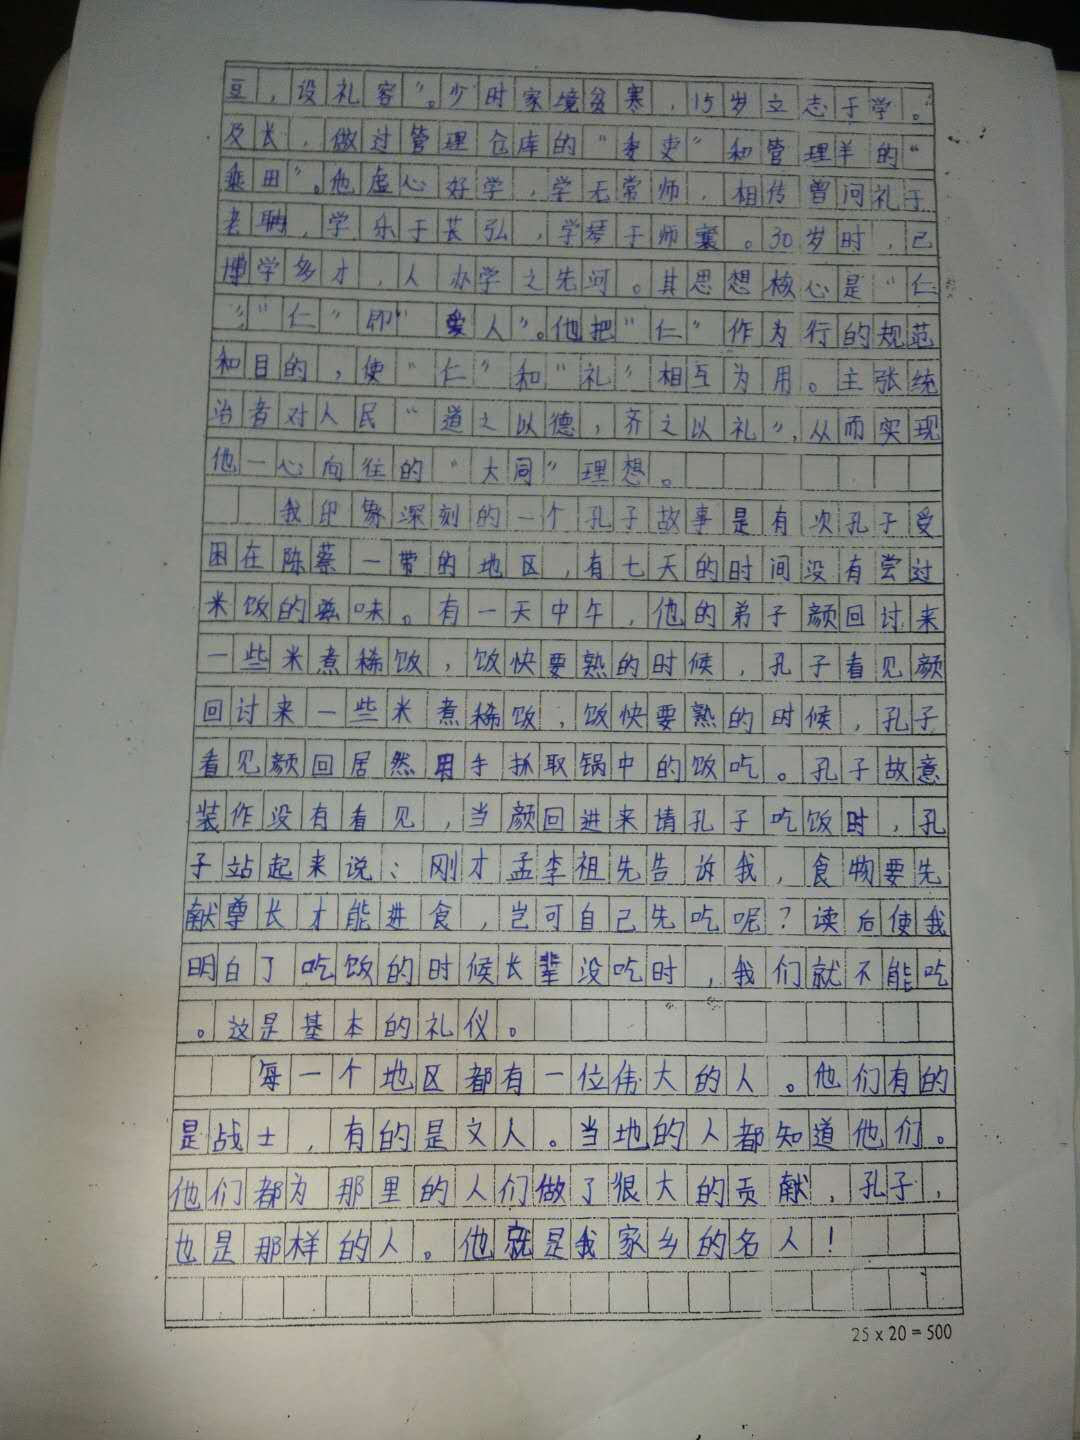 豆，设礼容”。少时家境贫寒，15岁立志于学。
及长，做过管理仓库的“委吏”和管理羊的“
乘田”。他虚心好学，学无常师，相传曾问礼于
老聃，学乐于苌弘，学琴于师襄。30岁时，已
博学多才，人办学之先河。其思想核心是“仁
”“仁”即“爱人”。他把“仁”作为行的规范
和目的，使“仁”和“礼”相互为用。主张统
治者对人民“道之以德，齐之以礼”，从而实现
他一心向往的“大同”理想。
我印象深刻的一个孔子故事是有次孔子受
困在陈蔡一带的地区，有七天的时间没有尝过
米饭的滋味。有一天中午，他的弟子颜回讨来
一些米煮稀饭，饭快要熟的时候，孔子看见颜
回讨来一些米煮稀饭，饭快要熟的时候，孔子
看见颜回居然用手抓取锅中的饭吃。孔子故意
装作没有看见，当颜回进来请孔子吃饭时，孔
子站起来说：刚才孟李祖先告诉我，食物要先
献尊长才能进食，岂可自己先吃呢？读后使我
明白了吃饭的时候长辈没吃时，我们就不能吃
。这是基本的礼仪。
每一个地区都有一位伟大的人。他们有的
是战士，有的是文人。当地的人都知道他们。
他们都为那里的人们做了很大的贡献，孔子，
也是那样的人。他就是我家乡的名人！
25 x 20 = 500